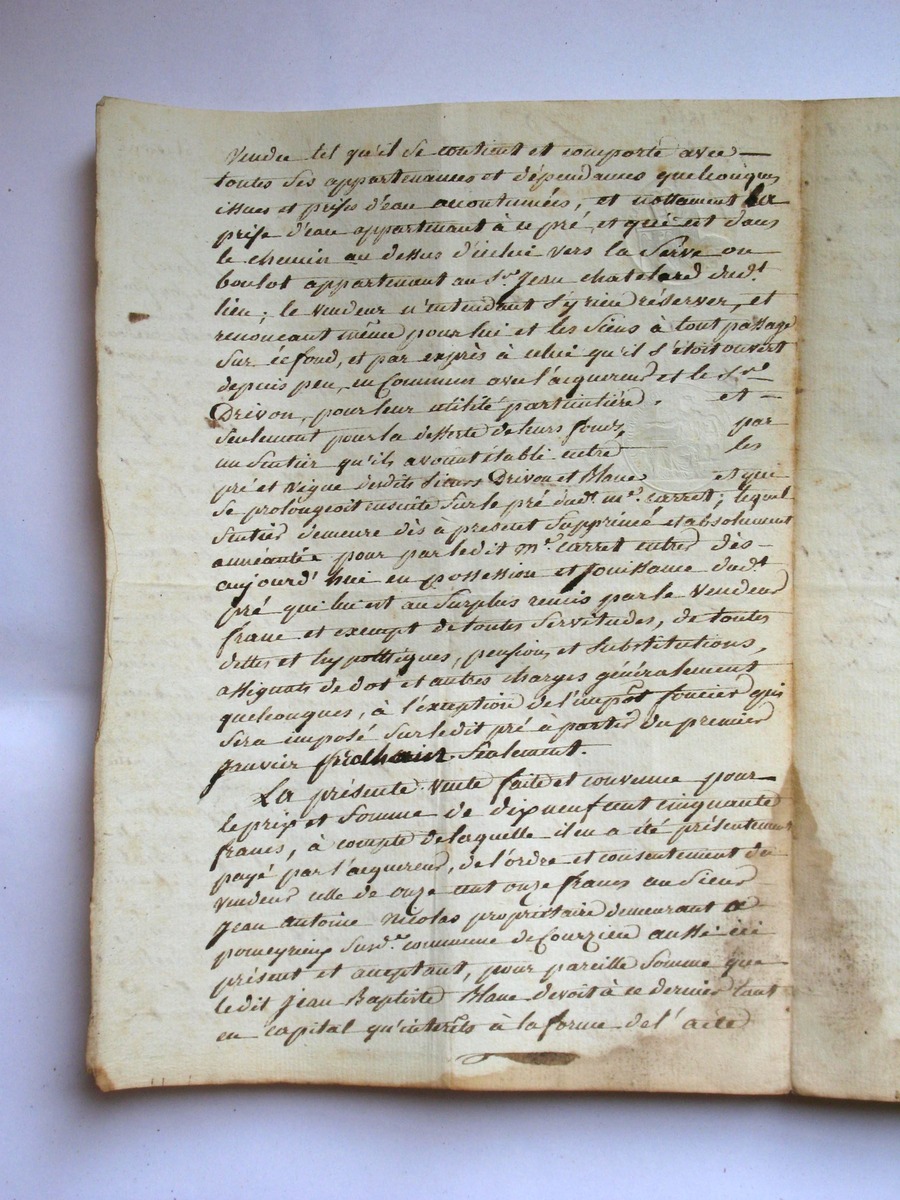 vendu tel qu'il se contient et comporte avec
toutes ses appartenances et dépendances quelconques
issues et prises d'eau accoutumées, et nottament la
prise d'eau appartenant à ce pré, et qui est dans
le chemin au dessus d'icelui vers la Serve ou
boulot appartenant au Sr. Jean Chatelard dudt.
lieu; le vendeur n'entendant s'y rien réserver, et
renonçant même pour lui et les siens à tout passage
sur ce fond, et par exprès à celui qu'il s'étoit ouvert
depuis peu, en commun avec l'acquereur et le Sr.
Drivon, pour leur utilité particulière. et
seulement pour la desserte de leurs fonds, par
un sentier qu'ils avoient établi entre les
pré et vigne desdits sieurs Drivon et Blanc et qui
se prolongeoit ensuite sur le pré dudt. mr. Carret; lequel
sentier demeure dès à présent supprimé et absolument
annéantie pour par ledit mr. Carret entrer dès-
aujourd'hui en possession et jouissance dudt.
pré qui lui est au surplus remis par le vendeur
franc et exempt de toutes servitudes, de toutes
dettes et hypothèques, pensions et substitutions,
assignats de dot et autres charges généralement
quelconques, à l'exception de l'impôt foncier qui
sera imposé sur ledit pré à partir du premier
janvier prochain seulement.
La présente vente faite et convenue pour
le prix et somme de dix neuf cent cinquante
francs, à compte de laquelle il en a été présentement
payé par l'acquereur, de l'ordre et consentement du
vendeur celle de onze cent onze francs au Sieur
Jean Antoine Nicolas propriétaire demeurant à
pomeyrieux susd.e commune de Courzieu aussi ici
présent et acceptant, pour pareille somme que
ledit Jean Baptiste Blanc devoit à ce dernier tant
en capital qu'interêts à la forme de l'acte